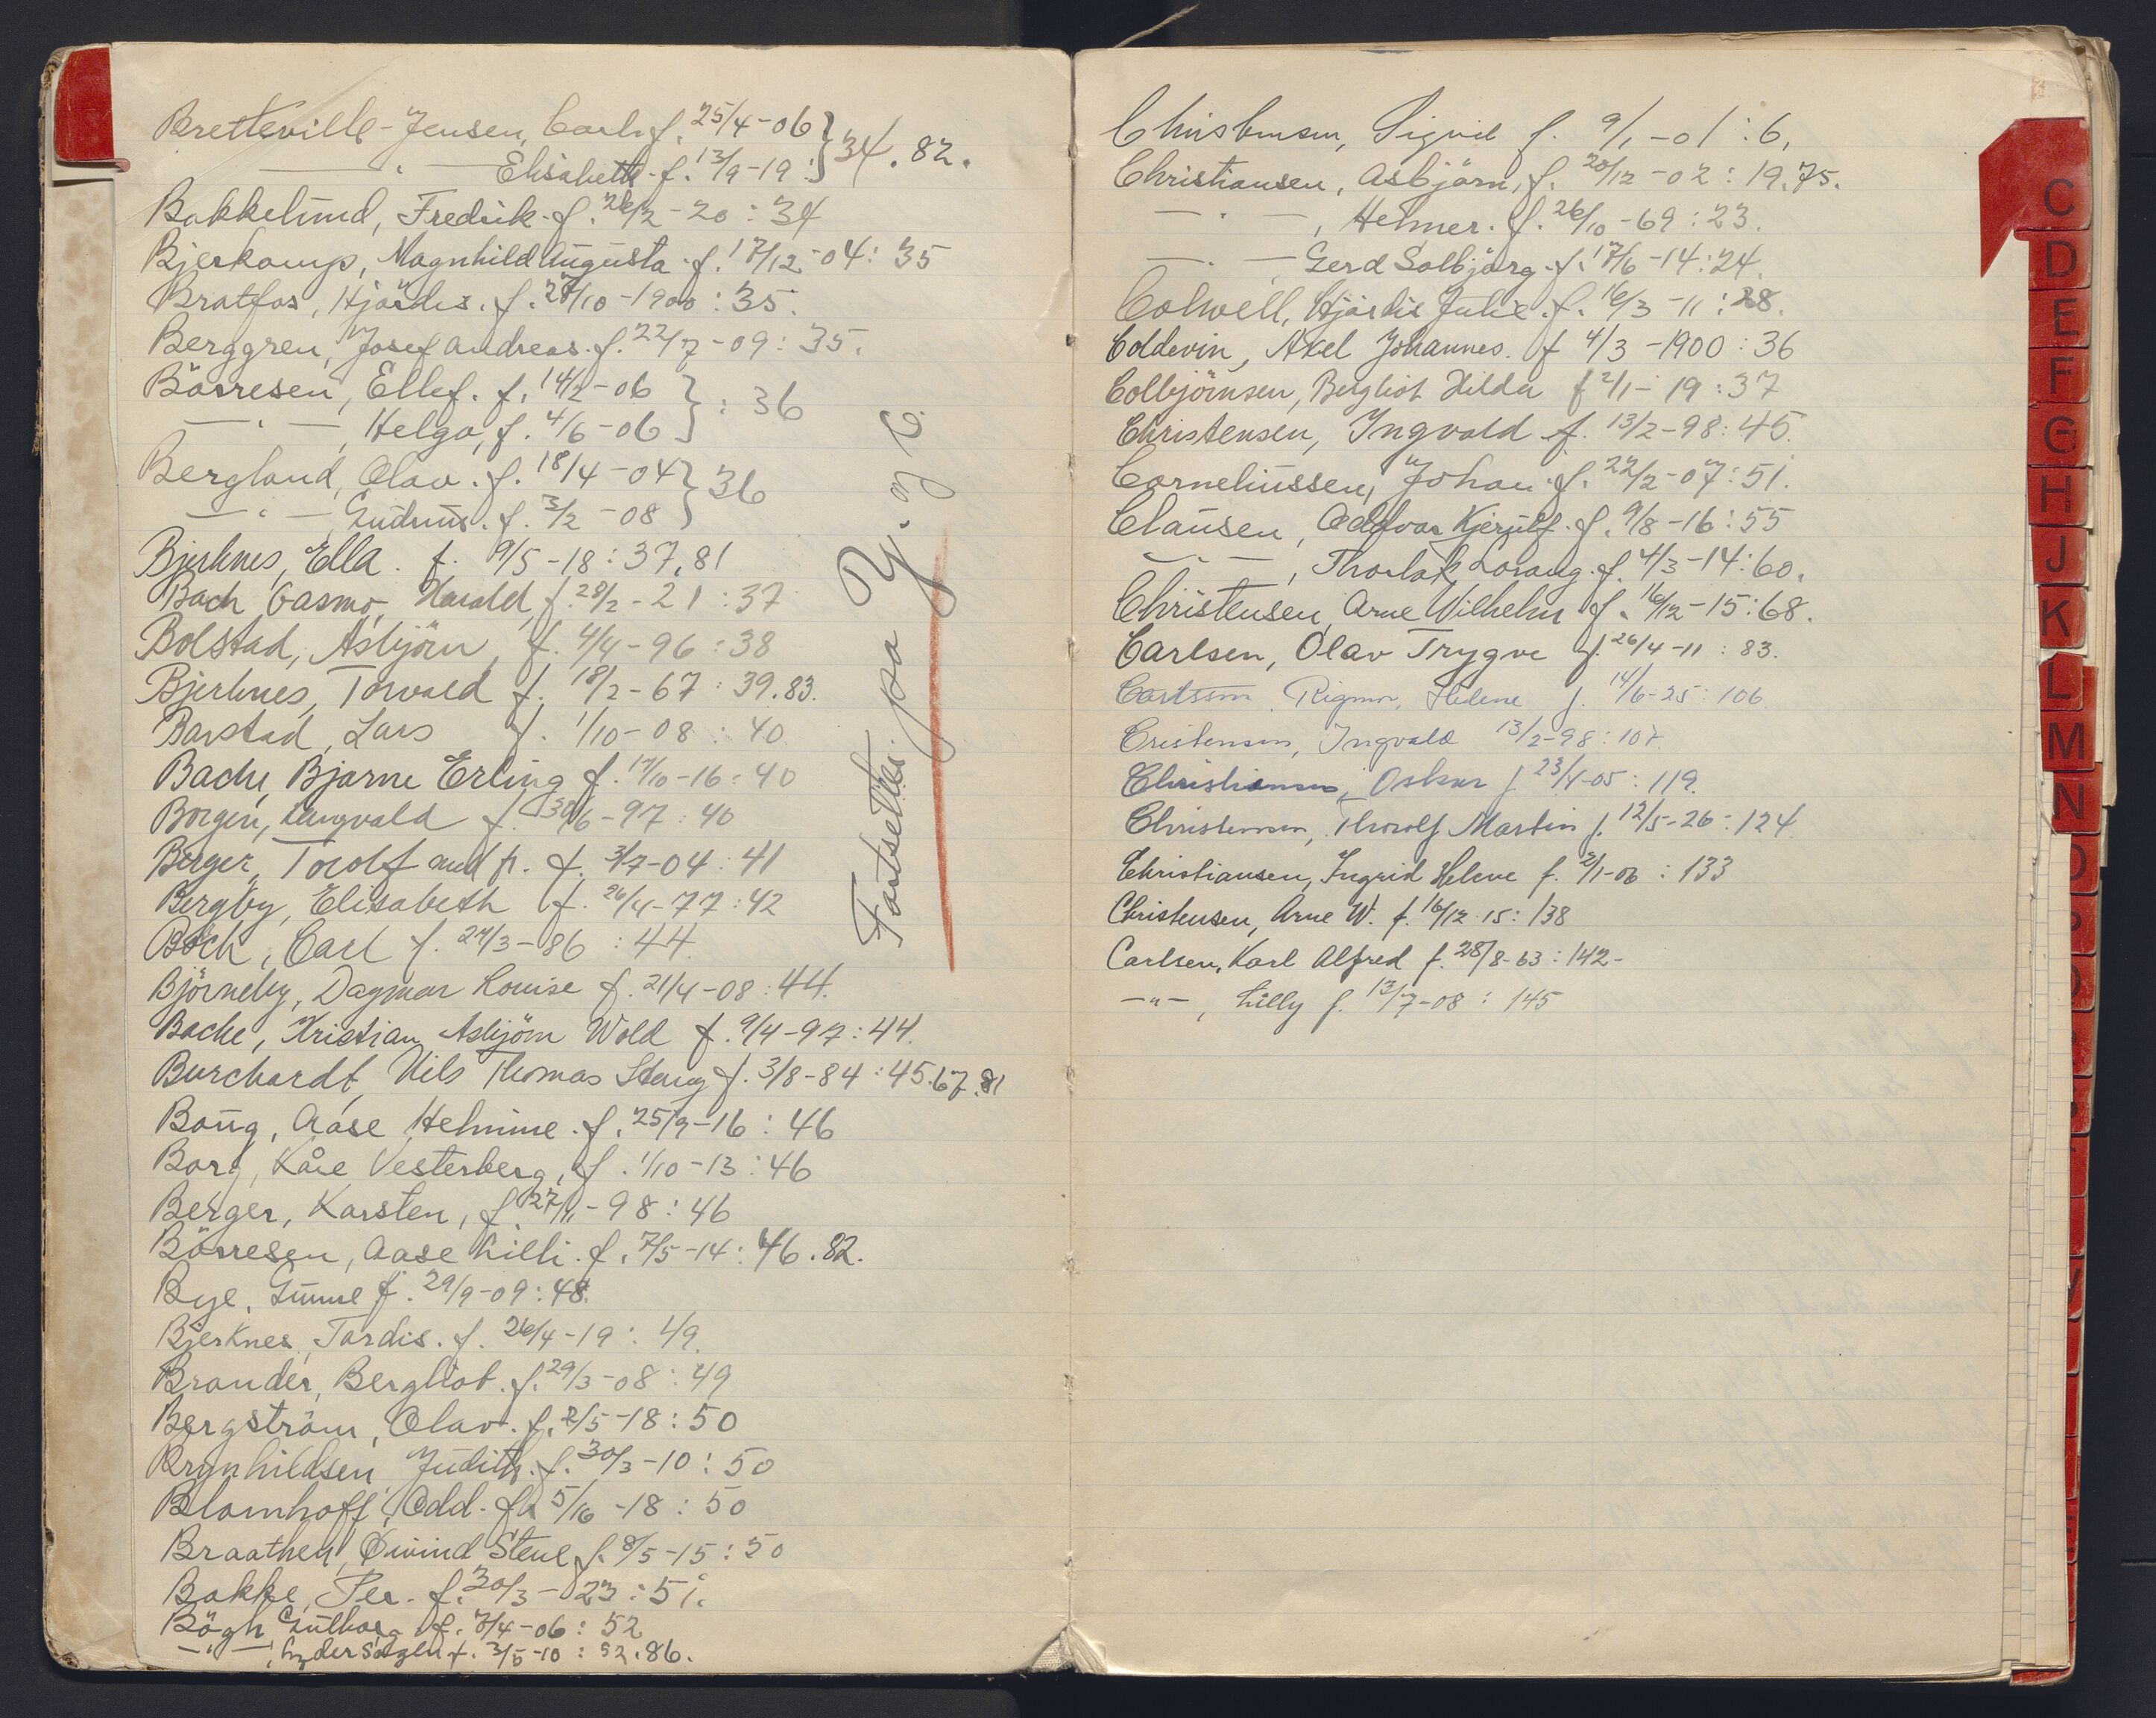 Bretteville-Jensen, Carl. f. 25/4-06 } 34.82.
— " — Elisabeth. f. 13/9-19:
Bakkelund, Fredrik. f. 26/2-20: 34
Bjerkamp, Magnhild Augusta. f. 17/12-04: 35
Bratfos, Hjördis. f. 27/10-1900: 35.
Berggren, Josef Andreas. f. 22/7-09: 35.
Börresen, Ellef. f. 14/2-06 } : 36
— " —, Helga, f. 4/6-06
Bergland, Olav. f. 18/4-04 } 36
— " — Gudrun. f. 3/2-08
Bjerknes, Ella. f. 9/5-18: 37,81
Bach Gasmo, Harald, f. 28/2-21: 37
Bolstad, Asbjörn, f. 4/4-96: 38
Bjerknes, Torvald f. 18/2-67: 39.83.
Barstad, Lars f. 1/10-08: 40.
Bache, Bjarne Erling f. 17/10-16: 40
Borgen, Langvald f. 30/6-97: 40
Berger, Torolf med fr. f. 3/7-04: 41
Bergby, Elisabeth f. 26/4-77: 42
Boch, Carl f. 27/3-86: 44.
Björneby, Dagmar Louise f. 21/4-08: 44.
Bache, Kristian Asbjörn Wold f. 9/4-97: 44.
Burchardt, Nils Thomas Stang f. 3/8-84: 45.67.81
Baug, Aase Helmine. f. 25/9-16: 46
Borg, Kåre Vesterberg, f. 1/10-13: 46
Berger, Karsten, f. 27/11-98: 46
Börresen, Aase Lilli. f. 7/5-14: 46.82.
Bye, Gunne f. 29/9-09: 48.
Bjerknes, Tordis. f. 26/4-19: 49.
Brander, Bergliot. f. 29/3-08: 49
Bergström, Olav. f. 2/5-18: 50
Brynhildsen, Judith. f. 30/3-10: 50
Blomhoff, Odd. f. 5/10-18: 50
Braathen, Øivind Stene f. 8/5-15: 50
Bakke, Per. f. 30/3-23: 51.
Bögh, Gulborg f. 7/4-06: 52
— " —, f. 3/5-10: 52.86.
Fortsettes på Y. og Z.
Christensen, Sigrid f. 9/1-01: 6.
Christiansen, Asbjörn, f. 20/12-02: 19.75.
— " —, Helmer. f. 26/10-69: 23.
— " — Gerd Solbjörg. f. 17/6-14: 24.
Colwell, Hjördis Julie. f. 16/3-11: 28.
Coldevin, Axel Johannes. f 4/3-1900: 36
Colbjörnsen, Bergliot Hilda f 2/1-19: 37
Christensen, Ingvald f. 13/2-98: 45.
Corneliussen, Johan. f. 22/2-07: 51.
Clausen, Oddvar Kjerulf. f. 9/8-16: 55
— " —, Thorlak Lorang. f. 4/3-14: 60.
Christensen, Arne Wilhelm f. 16/12-15: 68.
Carlsen, Olav Trygve f. 26/4-11: 83.
Carlsson, Rigmor, Helene f. 14/6-25: 106
Cristensen, Ingvald 13/2-98: 107.
Christiansen, Oskar f 23/4-05: 119.
Christensen, Thorolf Martin f. 12/5-26: 124.
Christiansen, Ingrid Helene f. 2/1-06: 133
Christensen, Arne W. f. 16/12-15: 138
Carlsen, Karl Alfred f. 28/8-63: 142-
— " —, Lilly f. 13/7-08: 145
C
D
E
F
G
H
J
K
L
M
N
O